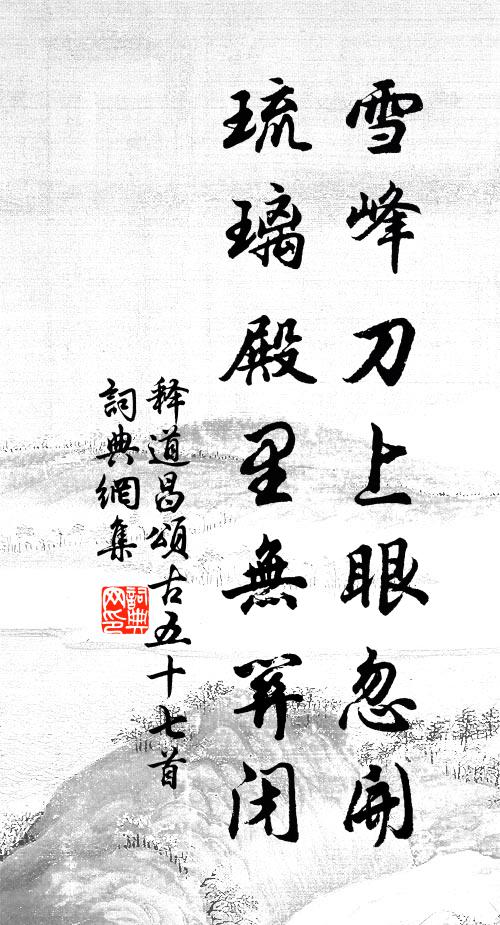 雪峰刀上眼忽開
琉璃殿里無闭
释道昌頌古五十七首
詞典網集
詞典网印